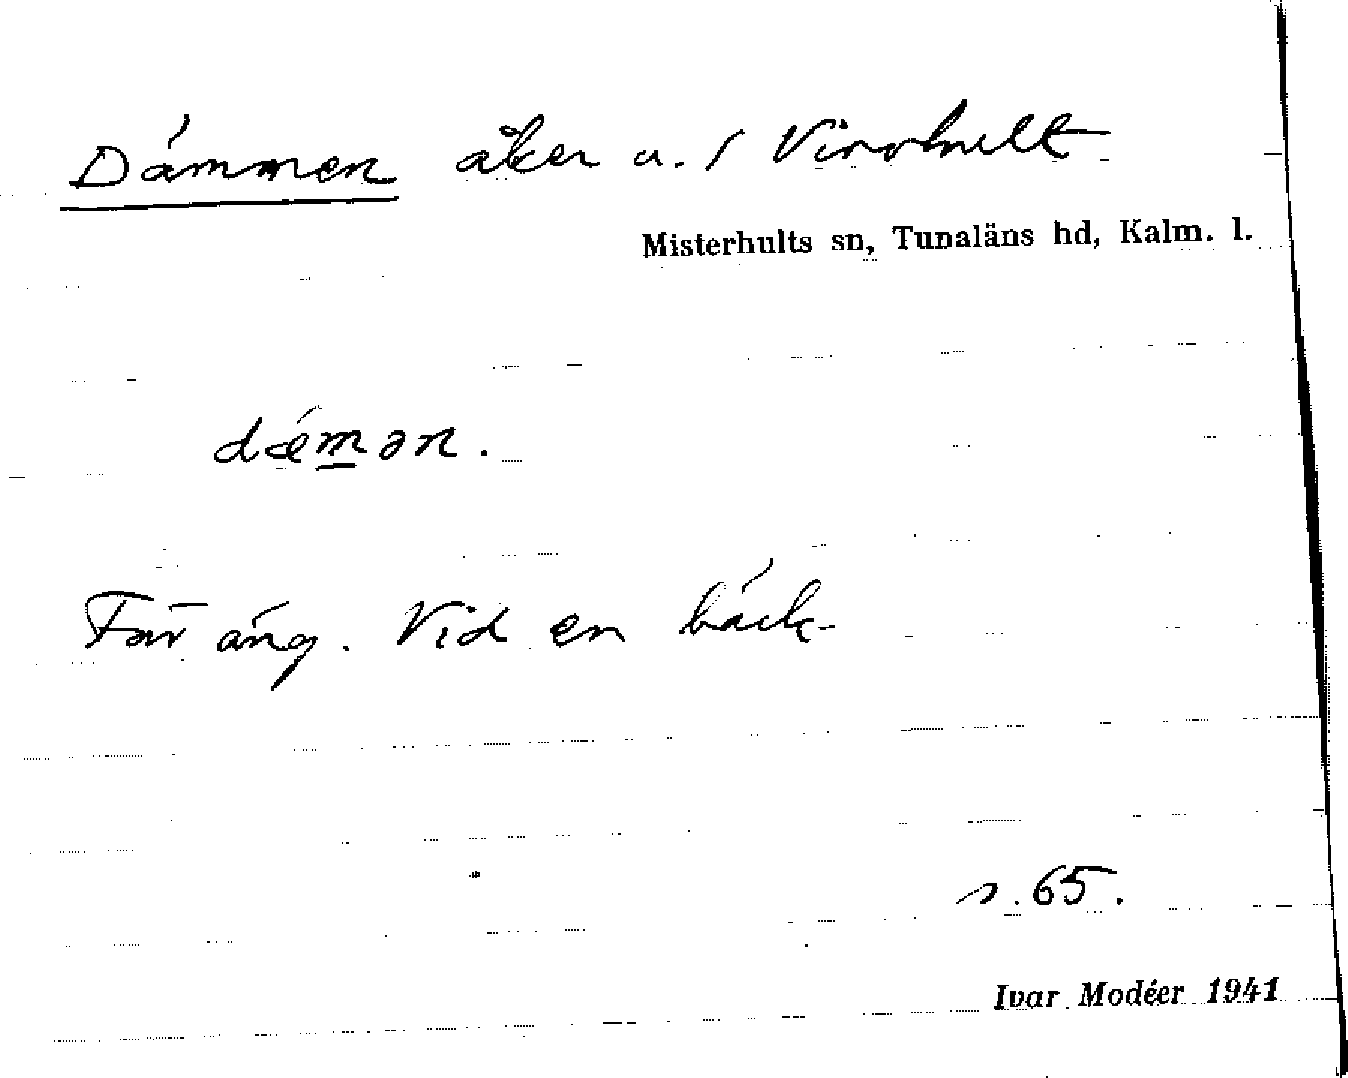 Dämmen åker u. / Virrhult
Misterhults sn, Tunaläns hd, Kalm. l.
dǽmən.
Förr äng. Vid en bäck.
s. 65.
Ivar Modéer 1941